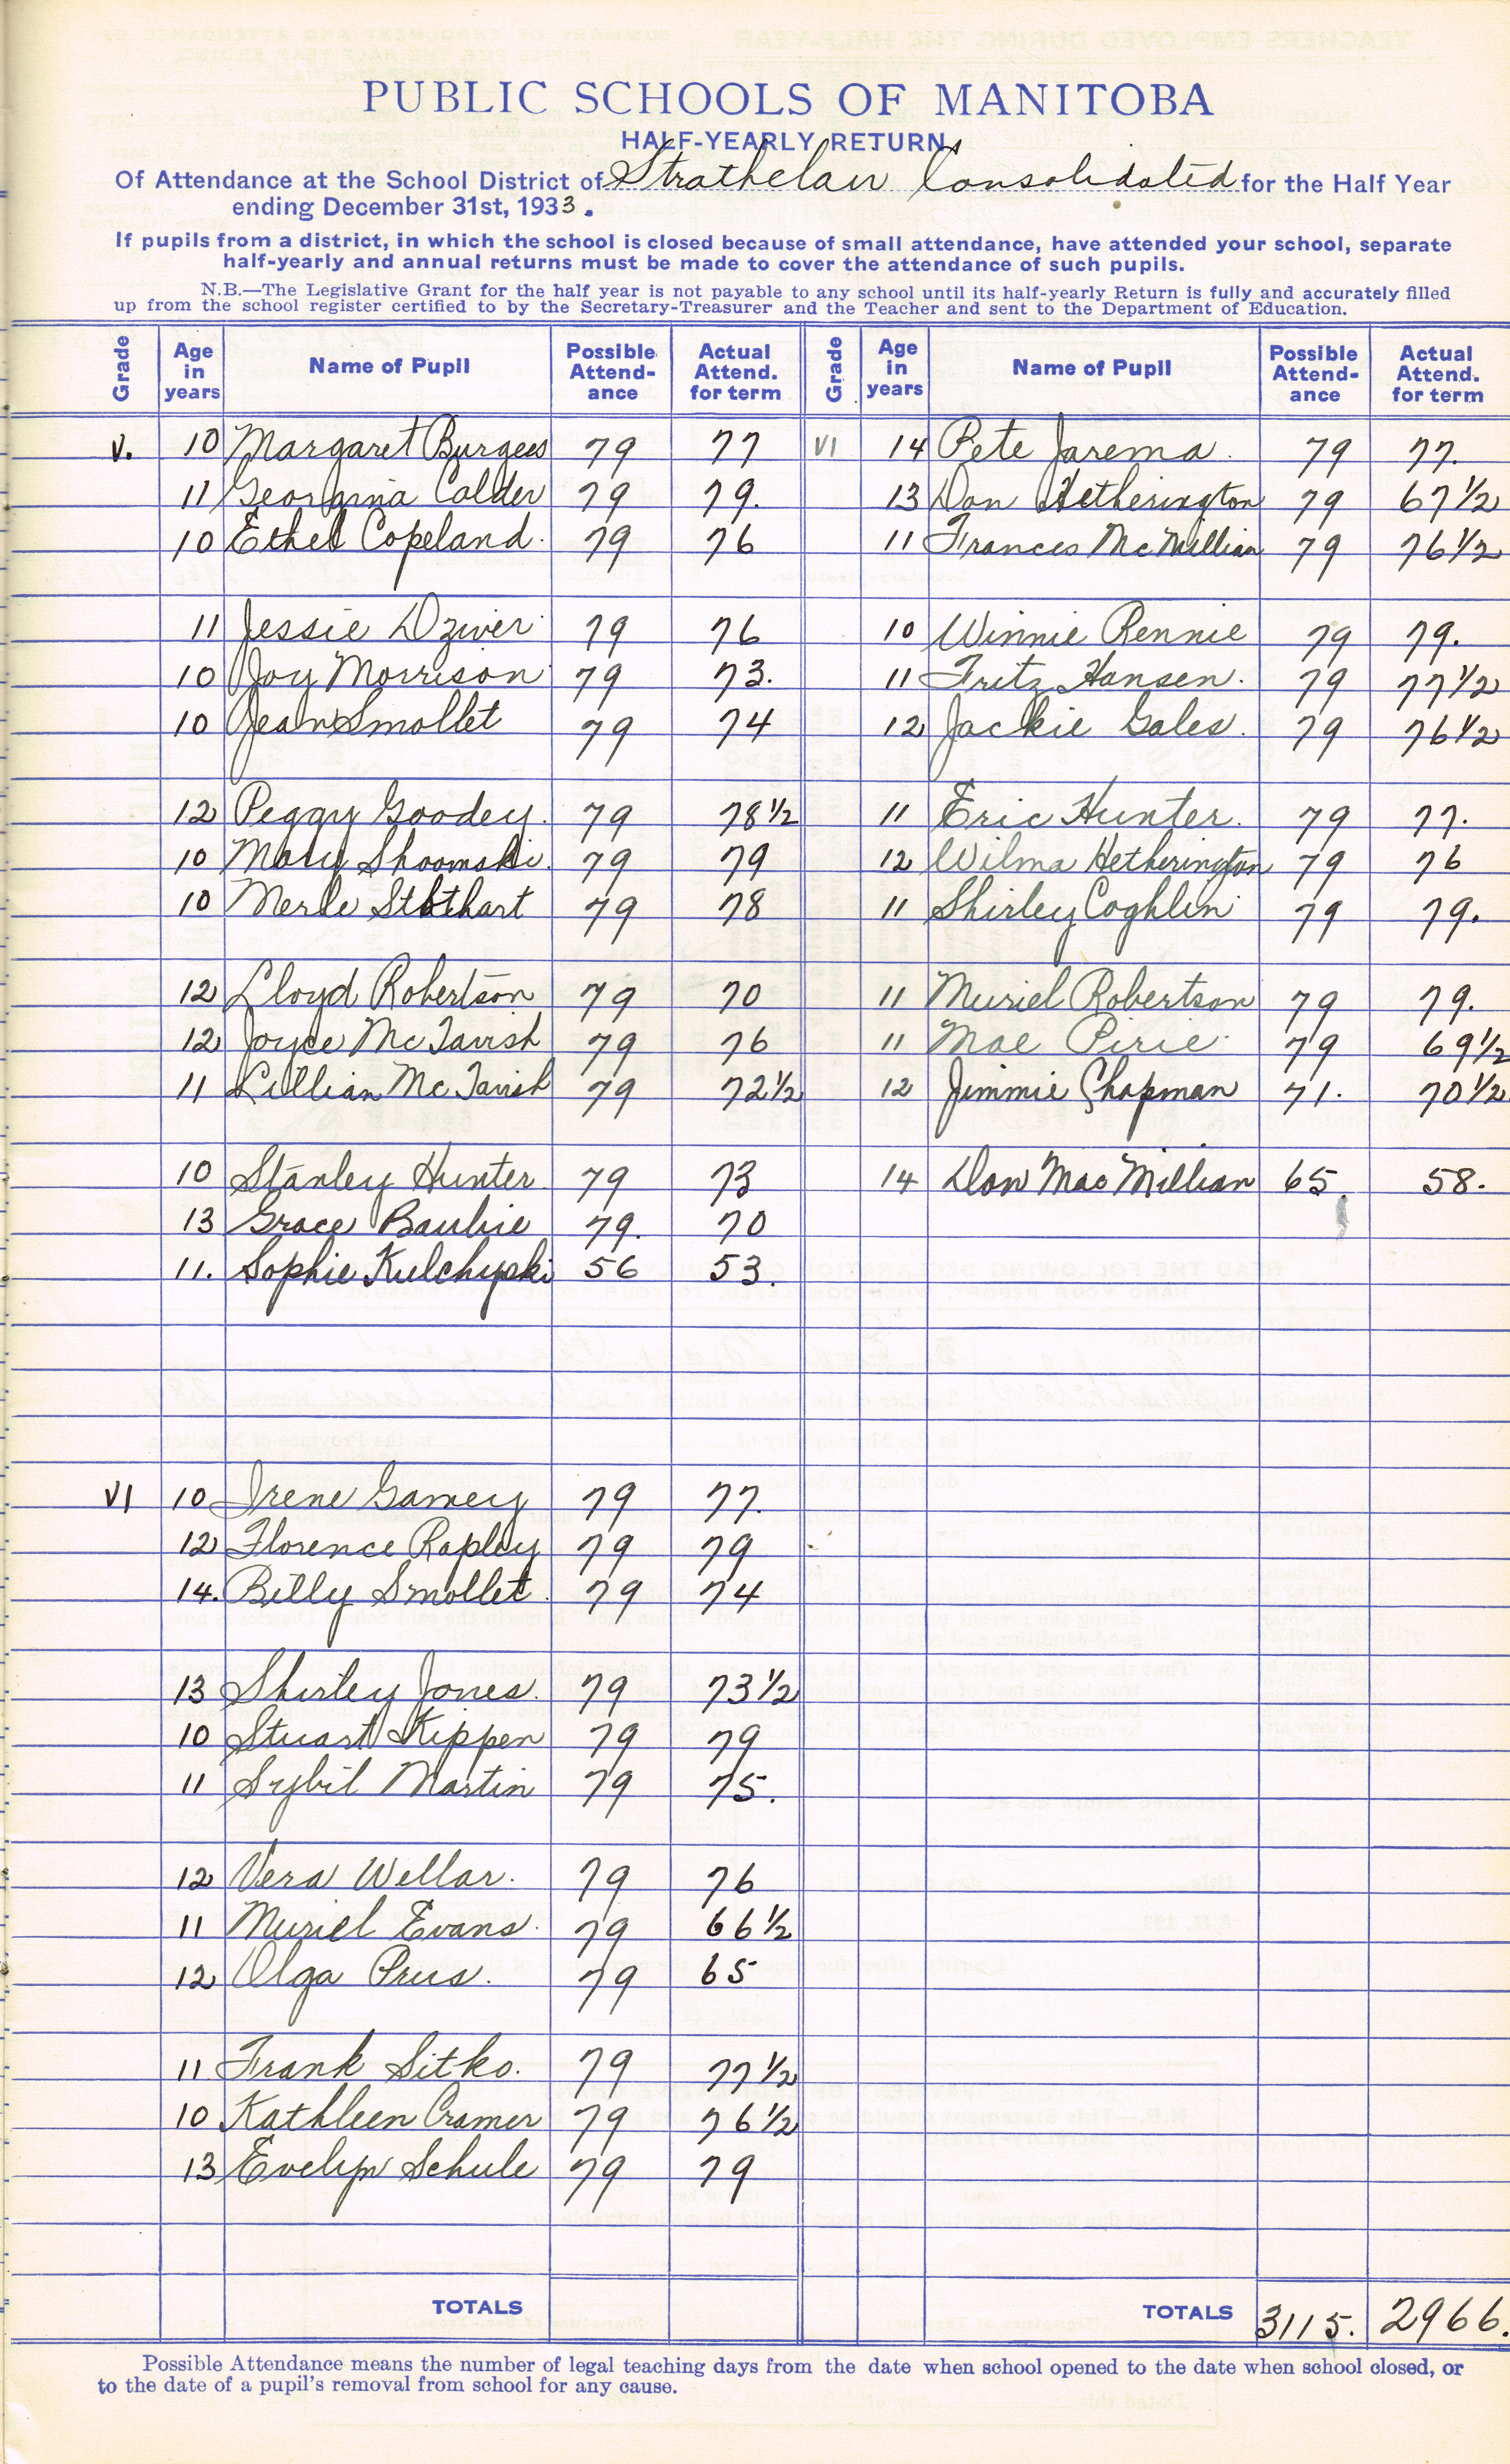 PUBLIC SCHOOLS OF MANITOBA
HALF-YEARLY RETURN
Of Attendance at the School District of Strathclair Consolidated for the Half Year
ending December 31st, 1933.
If pupils from a district, in which the school is closed because of small attendance, have attended your school, separate
half-yearly and annual returns must be made to cover the attendance of such pupils.
N.B.—The Legislative Grant for the half year is not payable to any school until its half-yearly Return is fully and accurately filled
up from the school register certified to by the Secretary-Treasurer and the Teacher and sent to the Department of Education.
Grade Age in years Name of Pupil Possible Attend-ance Actual Attend. for term Grade Age in years Name of Pupil Possible Attend-ance Actual Attend. for term
V. 10 Margaret Burgess 79 77 VI 14 Pete Jarema. 79 77.
11 Georgina Calder 79 79. 13 Don Hetherington 79 67 1/2
10 Ethel Copeland. 79 76 11 Frances McMillian 79 76 1/2
11 Jessie Dziver 79 76 10 Winnie Rennie 79 79.
10 Joy Morrison 79 73. 11 Fritz Hansen. 79 77 1/2
10 Jean Smollet 79 74 12 Jackie Gales. 79 76 1/2
12 Peggy Goodey. 79 78 1/2 11 Eric Hunter. 79 77.
10 Mary Shoomski. 79 79 12 Wilma Hetherington 79 76
10 Merle Stothart 79 78 11 Shirley Coghlin 79 79.
12 Lloyd Robertson 79 70 11 Muriel Robertson 79 79.
12 Joyce McTavish 79 76 11 Mae Pirie 79 69 1/2
11 Lillian McTavish 79 72 1/2 12 Jimmie Chapman 71. 70 1/2
10 Stanley Hunter. 79 73 14 Don MacMillian 65. 58.
13 Grace Baubie 79. 70
11. Sophie Kulchyski 56 53.
VI 10 Irene Gamey 79 77.
12 Florence Rapley 79 79
14. Billy Smollet. 79 74
13 Shirley Jones. 79 73 1/2
10 Stuart Kippen 79 79
11 Sybil Martin 79 75.
12 Vera Wellar. 79 76
11 Muriel Evans. 79 66 1/2
12 Olga Prus. 79 65
11 Frank Sitko. 79 77 1/2
10 Kathleen Cramer 79 76 1/2
13 Evelyn Schule 79 79
TOTALS TOTALS 3115. 2966.
Possible Attendance means the number of legal teaching days from the date when school opened to the date when school closed, or
to the date of a pupil's removal from school for any cause.